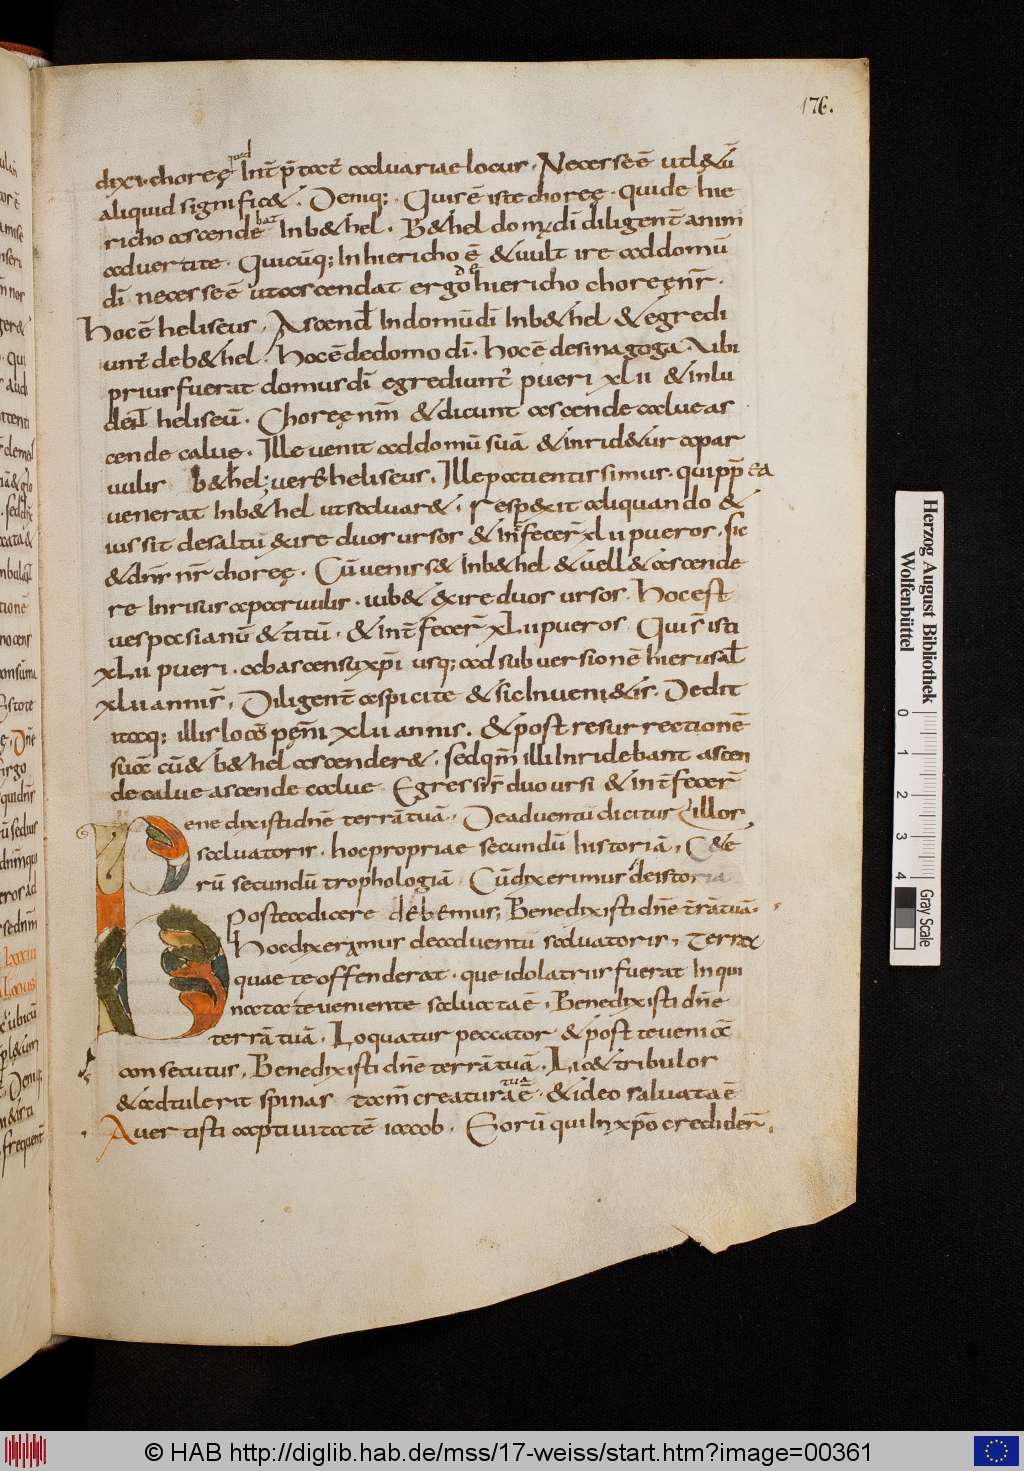 176.
dixi. choręę quod Int̄ p̄tat̄ caluariae locus. Necesse ē ut l&ū
aliquid signific&. Deniq; Quis ē iste choręę. qui de hie
richo ascendebat In b&hel. B&hel domꝰ dī diligent̄ anim
aduertite. Quicūq; In hiericho ē & uult ire ad domū
dī necesse ē ut ascendat ergo de hiericho choręę nr̄.
Hoc ē heliseus. Ascend̄ In domū dī In b&hel & egredi
unt̄ de b&hel. Hoc ē de domo dī. hoc ē de sinagoga. Vibi
prius fuerat domus dī egrediunt̄ pueri xlii & inlu
der̄ heliseū. Choręę nm̄ & dicunt ascende calue as
cende calue. Ille uenit ad domū suā & inrid&ur a par
uulis b&hel; uerꝰ heliseus. Ille patientissimus. quippe ea
uenerat In b&hel ut saluar&. respexit aliquando &
iussit de saltū exire duos ursos & int̄fecer̄ xlii pueros. sic
& dnr̄ nr̄ choręę. Cū uenis& In b&hel & uell& ascende
re Inrisus a paruulis. iub& exire duos ursos. Hoc est
uespasianū & titū. & int̄fecer̄ xLii pueros Qui s̄ isti
xLii pueri. ab ascensu xp̄i usq; ad subuersionē hierusal̄
xlii annis. Diligent̄ aspicite & sic Inueni&is. Dedit
itaq; illis locū pęni xlii annis. & post resurrectionē
suā cū & b&hel ascender&. sed qm̄ illi Inridebant ascen
de calue ascende calue Egressi s̄ duo ursi & int̄fecer̄
Bene dixisti dn̄e terrā tuā. De aduentu dicitur illor
saluatoris. hoc propriae secundū historiā, C&e
rū secundū trophologiā Cū dixerimus de istoria
postea dicere debemus; Benedixisti dn̄e t̄rā tuā.
Hoc dixerimus de aduentū saluatoris, Terra
quae te offenderat. que idolatriis fuerat In qui
nata te ueniente saluata ē. Benedixisti dn̄e
terrā tuā. Loquatur peccator & post te ueniā
consecutus, Benedixisti dn̄e terrā tuā. Lic& tribulos
& adtulerit spinas tam̄ creatura tua ē. & ideo saluata ē
Auertisti captiuitatē iacob. Eorū qui In xp̄o credider̄.
Herzog August Bibliothek
Wolfenbüttel
0 1 2 3 4
Gray Scale
© HAB http://diglib.hab.de/mss/17-weiss/start.htm?image=00361